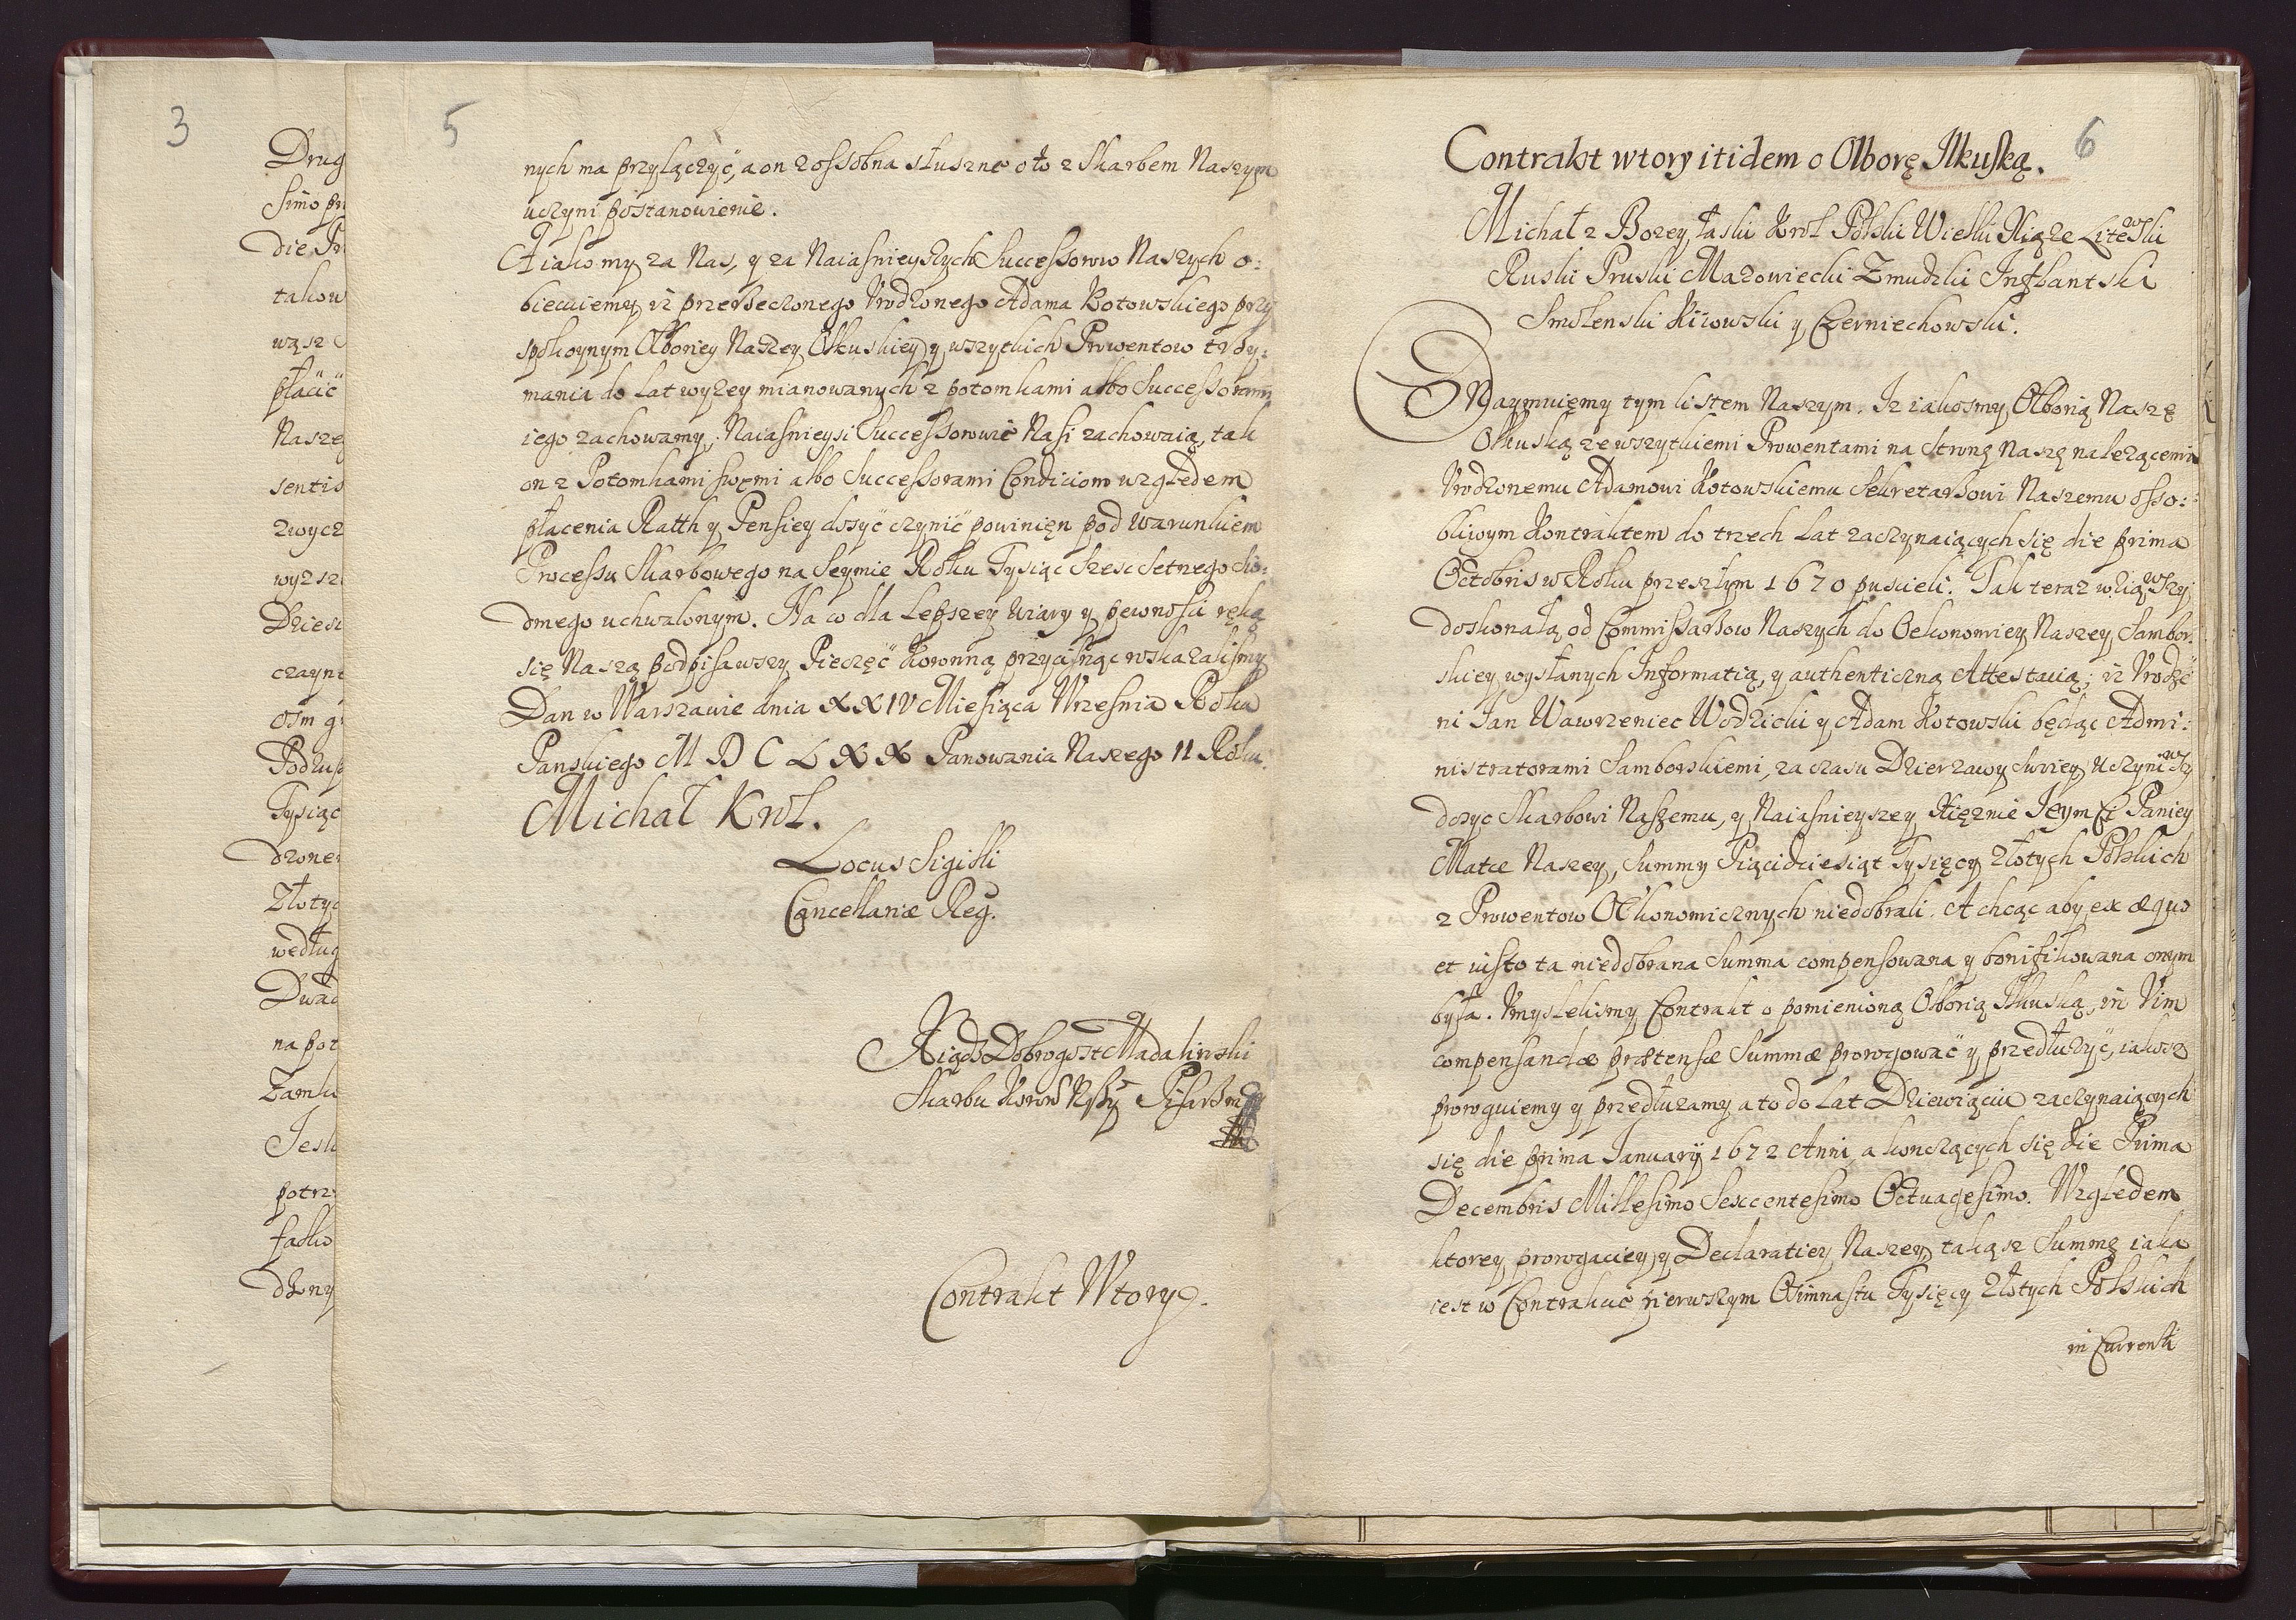 3
Drug
simo pri
die Pr
takow
wąsz
płacić
Nasze
sentis
zwycz
wyzsz
Dziesi
czayne
osm gr
Podłuś
Tysiąc
dzone
Złotyc
według
Dwad
na pot
Zamk
Jesli
potrz
fasko
dzony
5
nych ma przyłączyć, a on z ossobna słuszne o to z Skarbem Naszym
uczyni postanowienie.
A iako my za Nas, y za Naiasnieyszych Successorow Naszych o:
biecuiemy, iz przerzeczonego Vrodzonego Adama Kotowskiego przy
spokoynym Olboriey Naszey Olkuskiey y wszytkich Prowentow trzy:
mania do Lat wyzey mianowanych z potomkami albo Successorami
iego zachowamy, Naiasnieysi Successorowie Nasi zachowaią, tak
on z Potomkami swemi albo Successorami Condiciom względem
płacenia Rath y Pensiey dosyć czynić powinien pod warunkiem
Processu Skarbowego na Seymie Roku Tysiąc Szesc Setnego Sio:
dmego uchwalonym. Na co dla Lepszey wiary y pewności ręką
się Naszą podpisawszy Pieczęć Koronną przycisnąc rozkazalismy
Dan w Warszawie dnia XXIV Miesiąca Wrzesnia Roku
Panskiego M D C L X X Panowania Naszego II Roku.
Michał Krol.
Locus Sigilli
Cancellariæ Reg.
Xiądz Dobrogost Madalinski
Skarbu Koron Pisarz
Contrakt Wtory.
6
Contrakt wtory itidem o Olborę Ilkuską.
Michał z Bozey łaski Krol Polski Wielki Xiąze Litewski
Ruski Pruski Mazowiecki Zmudzki Inflantski
Smolenski Kiiowski y Czerniechowski.
Oznaymuięmy tym listem Naszym. Iz iakosmy Olborią Naszę
Olkuską ze wszytkiemi Prowentami na Stronę Naszę nalezącemi
Vrodzonemu Adamowi Kotowskiemu Sekretarzowi Naszemu osso:
bliwym Kontraktem do trzech Lat zaczynaiących się die prima
Octobris w Roku przeszłym 1670 puscieli. Tak teraz wziąwszy
doskonałą od Commissarzow Naszych do Oekonomiey Naszey Sambor:
skiey wysłanych Informatią, y authenticzną Attestacią; iz Vrodze
ni Jan Wawrzeniec Wodzicki y Adam Kotowski będąc Admi:
nistratorami Samborskiemi, za czasu Dzierzawy swoiey uczyniwszy
dosyc Skarbowi Naszemu, y Naiasnieyszey Xięznie Jeym Ci Paniey
Matce Naszey, Summy Pięcidziesiąt Tysięcy Złotych Polskich
z Prowentow Oekonomicznych niedobrali. A chcąc aby ex æquo
et iusto ta niedobrana Summa compensowana y bonifikowana onym
była. Vmyslelismy Contrakt o pomienioną Olborią Ilkuską, in Vim
compensandæ prætensæ Summæ prorogować y przedłuzyć, iakosz
proroguiemy y przedłuzamy a to do Lat Dziewiąciu zaczynaiących
się die prima Januarij 1672 Anni, a konczących się die Prima
Decembris Millesimo Sexcentesimo Octuagesimo. Względem
ktorey prorogaciey y Declaratiey Naszey, takąsz Summę iaka
iest w Contrakcie pierwszym Osimnastu Tysięcy Złotych Polskich
in Currenti